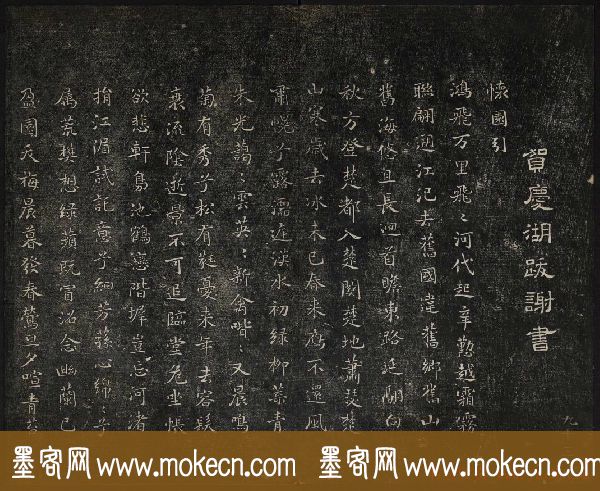 賀慶湖跋謝書
懷園引
鴻飛万里飛〻河代起辛勤越霜霧
聯翩遡江汜去舊國違舊鄉舊山
舊海悠且長迴首瞻東路延翮向
秋方登楚都入楚關楚地蕭瑟楚
山寒歲去冰未已春來鴈不還風
肅幌兮露濡庭漢水初綠柳葉青
朱光藹〻雲英〻新禽喈〻又晨鳴
菊有秀兮松有蕤憂來年去容髮
衰流陰逝景不可追臨堂危坐悵
欲悲軒鳥池鶴戀階墀豈忘河渚
捐江湄試託意兮細芳蓀心綿〻兮
屬荒樊想綠蘋既冒沼念幽蘭已
盈園夭桃晨暮發春鶯旦夕喧青
九
墨客网 www.mokecn.com 墨客网 www.mokecn.com